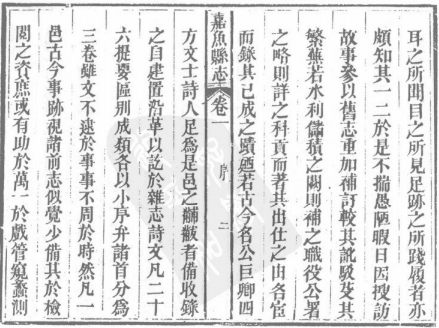 耳之所聞目之所見足跡之所踐履者亦
頗知其一二於是不揣愚陋暇日因搜訪
故事參以舊志重加補訂較其訛駁芟其
繁蕪若水利儲積之闕則補之職役公署
之略則詳之科貢而著其出仕之由各宦
而錄其已成之蹟廼若古今名公巨卿四
嘉魚縣志 卷一 序 二
方文士詩人足爲是邑之黼黻者備收錄
之自建置沿革以訖於雜志詩文凡二十
六提要區別成類各以小序弁諸首分爲
三卷雖文不逮於事事不周於時然凡一
邑古今事跡視諸前志似覺少備其於檢
閱之資庶或有助於萬一於戲管窺蠡測